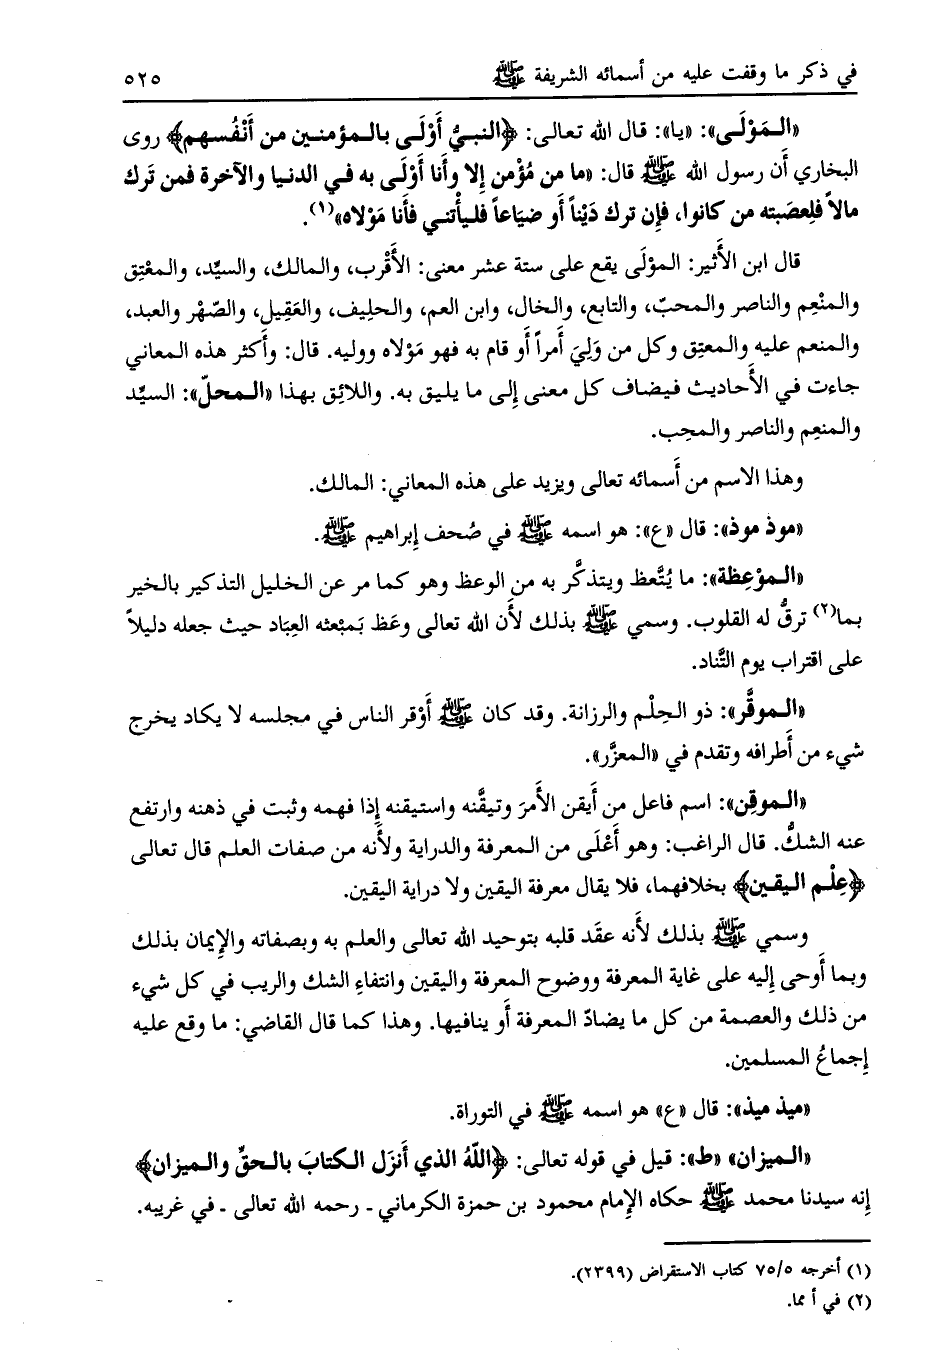 في ذكر ما وقفت عليه من أسمائه الشريفة ﷺ ٥٢٥
«الـمَوْلَى»: «يا»: قال الله تعالى: ﴿النبيُّ أَوْلَى بالـمؤمنـين من أَنْفُسهم﴾ روى
البخاري أن رسول الله ﷺ قال: «ما من مُؤْمن إلا وأنا أَوْلَى به فـي الدنـيا والآخرة فمن تَرك
مالاً فلِعصَبته من كانوا، فإن ترك دَيْناً أو ضيَاعاً فلـيأْتنـي فأنا مَوْلاه»(١).
قال ابن الأَثير: الـموْلَى يقع على ستة عشر معنى: الأَقْرب، والـمالك، والسيِّد، والـمعْتِق
والـمنْعِم والناصر والـمحبّ، والتابع، والـخال، وابن العم، والـحلِيف، والعَقِيل، والصّهْر والعبد،
والـمنعم عليه والـمعتِق وكل من وَلِيَ أَمراً أَو قام به فهو مَوْلاه ووليه. قال: وأَكثر هذه الـمعاني
جاءت فـي الأَحاديث فـيضاف كل معنى إِلى ما يليق به. واللائِق بهذا «الـمحلّ»: السيِّد
والـمنعِم والناصر والـمحِب.
وهذا الاسم من أَسمائه تعالى ويزيد على هذه الـمعاني: الـمالك.
«موذ موذ»: قال «ع»: هو اسمه ﷺ في صُحف إبراهيم ﷺ.
«الـموْعِظة»: ما يُتَّعظ ويتذكَّر به من الوعظ وهو كما مر عن الـخليل التذكير بالـخير
بـما(٢) ترقُّ له القلوب. وسمي ﷺ بذلك لأَن الله تعالى وعَظ بَمبْعثه العِبَاد حيث جعله دليلاً
على اقتراب يوم التَّناد.
«الـموقَّر»: ذو الـحِلْم والرزانة. وقد كان ﷺ أَوْقر الناس فـي مـجلسه لا يكاد يخرج
شيء من أَطرافه وتقدم في «الـمعزَّر».
«الـموقِن»: اسم فاعل من أَيقن الأَمرَ وتيقَّنه واستيقنه إِذا فهمه وثبت في ذهنه وارتفع
عنه الشكُّ. قال الراغب: وهو أَعْلَى من الـمعرفة والدراية ولأَنه من صفات العلم قال تعالى
﴿عِلْم اليقين﴾ بخلافهما، فلا يقال معرفة اليقين ولا دراية اليقين.
وسمي ﷺ بذلك لأَنه عقَد قلبه بتوحيد الله تعالى والعلم به وبصفاته والإِيمان بذلك
وبما أَوحى إِليه على غاية الـمعرفة ووضوح الـمعرفة واليقين وانتفاءِ الشك والريب في كل شيء
من ذلك والعصمة من كل ما يضادّ الـمعرفة أَو ينافيها. وهذا كما قال القاضي: ما وقع عليه
إِجماعُ الـمسلمين.
«ميذ ميذ»: قال «ع» هو اسمه ﷺ في التوراة.
«الـميزان» «ط»: قيل في قوله تعالى: ﴿اللّهُ الذي أَنزَل الكتابَ بالـحقِّ والـميزان﴾
إنه سيدنا محمد ﷺ حكاه الإمام محمود بن حمزة الكرماني - رحمه الله تعالى - في غريبه.
(١) أخرجه ٧٥/٥ كتاب الاستقراض (٢٣٩٩).
(٢) في أ مما.